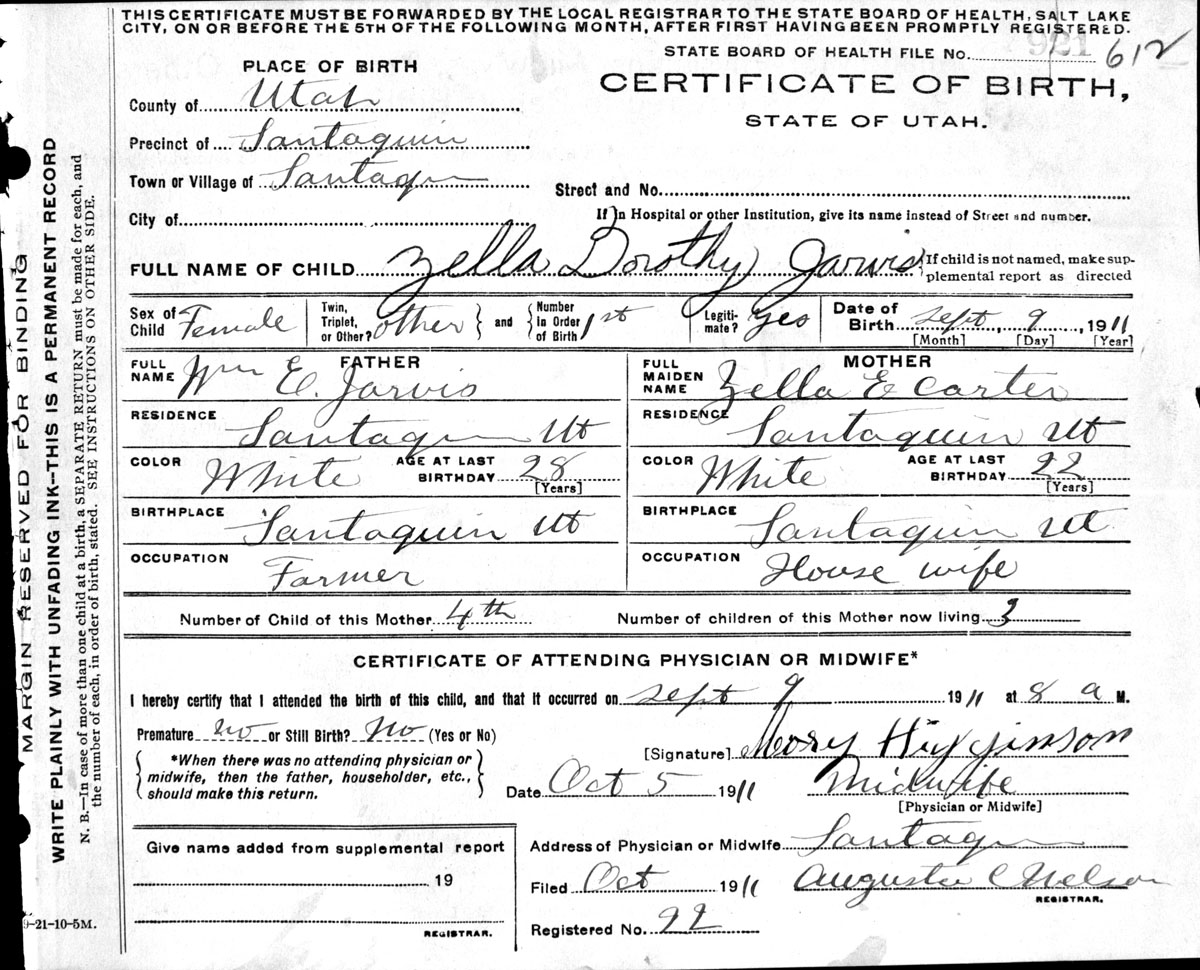 THIS CERTIFICATE MUST BE FORWARDED BY THE LOCAL REGISTRAR TO THE STATE BOARD OF HEALTH, SALT LAKE
CITY, ON OR BEFORE THE 5TH OF THE FOLLOWING MONTH, AFTER FIRST HAVING BEEN PROMPTLY REGISTERED.
921
STATE BOARD OF HEALTH FILE No. 612
PLACE OF BIRTH
CERTIFICATE OF BIRTH,
STATE OF UTAH.
County of Utah
Precinct of Santaquin
Town or Village of Santaqn
Street and No.
City of
If in Hospital or other Institution, give its name instead of Street and number.
FULL NAME OF CHILD Zella Dorothy Jarvis
If child is not named, make sup-
plemental report as directed
Sex of Child Female
Twin, Triplet, or Other? other and Number In Order of Birth 1st
Legiti-mate? Yes
Date of Birth Sept, 9, 1911
[Month] [Day] [Year]
FATHER
FULL NAME Wm E. Jarvis
RESIDENCE Santaqn Ut
COLOR White AGE AT LAST BIRTHDAY 28
[Years]
BIRTHPLACE Santaquin Ut
OCCUPATION Farmer
MOTHER
FULL MAIDEN NAME Zella E Carter
RESIDENCE Santaquin Ut
COLOR White AGE AT LAST BIRTHDAY 22
[Years]
BIRTHPLACE Santaquin Ut
OCCUPATION House wife
Number of Child of this Mother 4th Number of children of this Mother now living 3
CERTIFICATE OF ATTENDING PHYSICIAN OR MIDWIFE*
I hereby certify that I attended the birth of this child, and that it occurred on Sept 9 1911 at 8 a M.
Premature no or Still Birth? No (Yes or No)
*When there was no attending physician or
midwife, then the father, householder, etc.,
should make this return.
[Signature] Mary Higginson
Date Oct 5 1911 Midwife
[Physician or Midwife]
Give name added from supplemental report
19
REGISTRAR.
Address of Physician or Midwife Santaqn
Filed Oct 1911 Augusta C Nelson
REGISTRAR.
Registered No. 22
9-21-10-5M.
MARGIN RESERVED FOR BINDING
WRITE PLAINLY WITH UNFADING INK--THIS IS A PERMANENT RECORD
N. B.—In case of more than one child at a birth, a SEPARATE RETURN must be made for each, and
the number of each, in order of birth, stated. SEE INSTRUCTIONS ON OTHER SIDE.